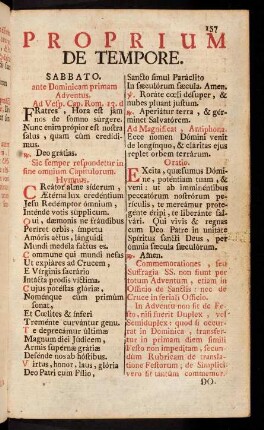 157
PROPRIUM
DE TEMPORE.
SABBATO.
ante Dominicam primam
Adventus.
Ad Vesp. Cap. Rom. 13. d
Fratres, Hora est jam
nos de somno surgere.
Nunc enim propior est nostra
salus, quam cùm credidi-
mus.
℟. Deo gratias.
Sic semper respondetur in
fine omnium Capitulorum.
Hymnus.
Creátor alme síderum,
Ætérna lux credéntium
Jesu Redémptor ómnium,
Inténde votis súpplicum.
Qui, dæmonis ne fráudibus
Períret orbis, ímpetu
Amóris actus, lánguidi
Mundi medéla factus es.
Commúne qui mundi nefas
Ut expiáres ad Crucem,
E Vírginis sacrário
Intácta prodis víctima.
Cujus potéstas glóriæ,
Noménque cùm primùm
sonat,
Et Cœlites & ínferi
Treménte curvántur genu.
Te deprecámur últimæ
Magnum diéi Júdicem,
Armis supérnæ grátiæ
Defénde nos ab hóstibus.
Virtus, honor, laus, glória
Deo Patri cum Fílio,
Sancto simul Paráclito
In sæculórum sæcula. Amen.
℣. Rorate cœli desuper, &
nubes pluant justum.
℟. Aperiátur terra, & gér-
minet Salvatórem.
Ad Magnificat, Antiphona.
Ecce nomen Dómini venit
de longínquo, & cláritas ejus
replet orbem terrárum.
Oratio.
Excita, quæsumus Dómi-
ne, poténtiam tuam, &
veni: ut ab imminéntibus
peccatórum nostrórum pe-
rículis, te mereámur prote-
gente éripi, te liberánte sal-
vári. Qui vivis & regnas
cum Deo Patre in unitáte
Spíritus sancti Deus, per
ómnia sæcula sæculórum.
℟. Amen.
Commemorationes, seu
Suffragia SS. non fiunt per
totum Adventum, etiam in
Officio de Sanctis: nec de
Cruce in feriali Officio.
In Adventu non fit de Fe-
sto, nisi fuerit Duplex, vel
Semiduplex: quod si occur-
rat in Dominico, transfer-
tur in primam diem simili
Festo non impeditam, secun-
dùm Rubricam de transla-
tione Festorum, de Simplici
verò fit tantùm commemor.
DO-